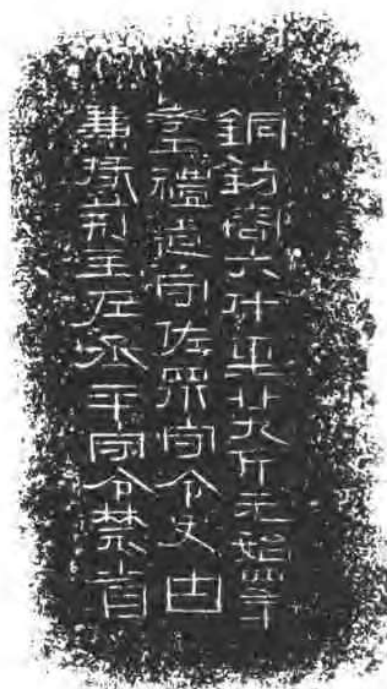 銅鈁容六升重廿九斤元始四年
考工禮造守佐眾守令史由
兼掾荆主左丞平守令禁省